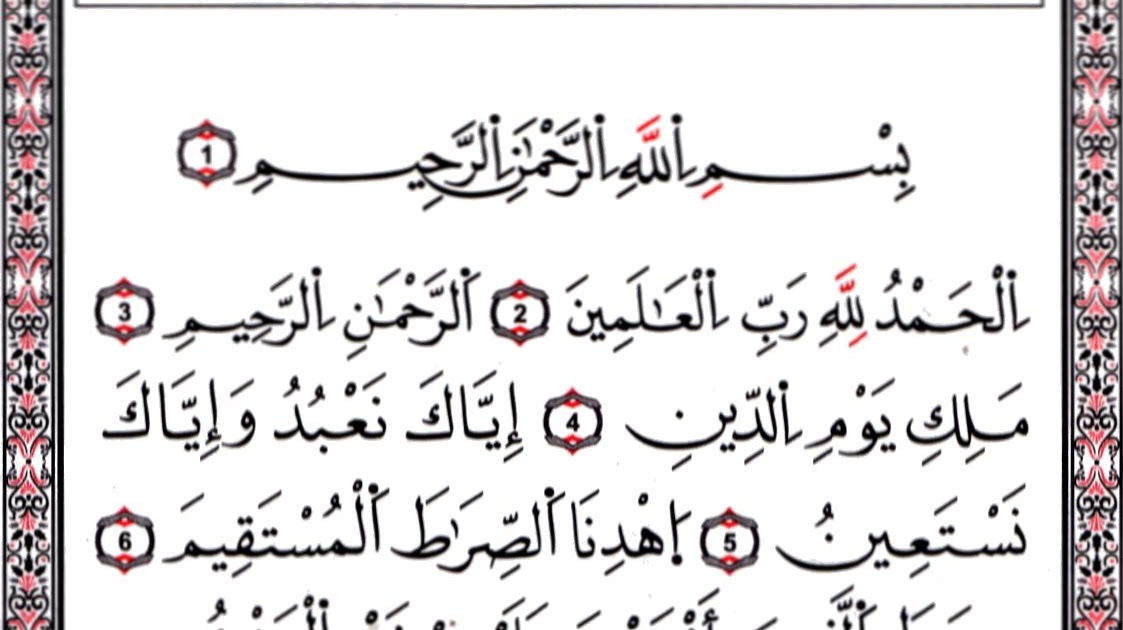 بِسْمِ اِ۬للَّهِ اِ۬لرَّحْمَٰنِ اِ۬لرَّحِيمِ 1
اِ۬لْحَمْدُ لِلَّهِ رَبِّ اِ۬لْعَٰلَمِينَ 2 اَ۬لرَّحْمَٰنِ اِ۬لرَّحِيمِ 3
مَلِكِ يَوْمِ اِ۬لدِّينِ 4 إِيَّاكَ نَعْبُدُ وَإِيَّاكَ
نَسْتَعِينُ 5 اَ۪هْدِنَا اَ۬لصِّرَٰطَ اَ۬لْمُسْتَقِيمَ 6